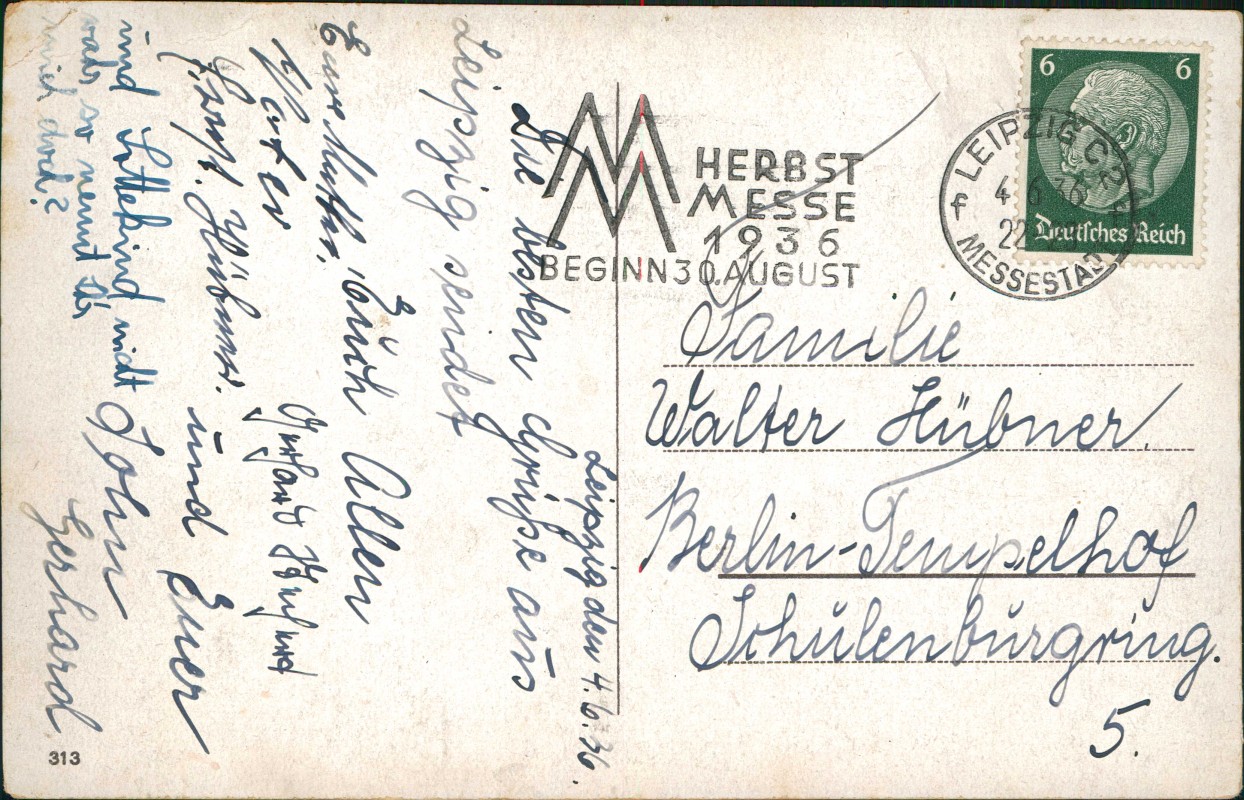 Leipzig den 4.6.36.
Die besten Grüße aus
Leipzig sendet
Euch Allen
Eure Mutter,
Vater
Gerhard
und Euer
Horst. Hübner.
John
Gerhard.
und Lottekind nicht
so nennt Ihr
mich doch?
HERBST
MESSE
1936
BEGINN 30. AUGUST
LEIPZIG C2
f 4.6.36 f
22
MESSESTADT
6 6
Deutsches Reich
Familie
Walter Hübner,
Berlin-Tempelhof
Schulenburgring.
5.
313